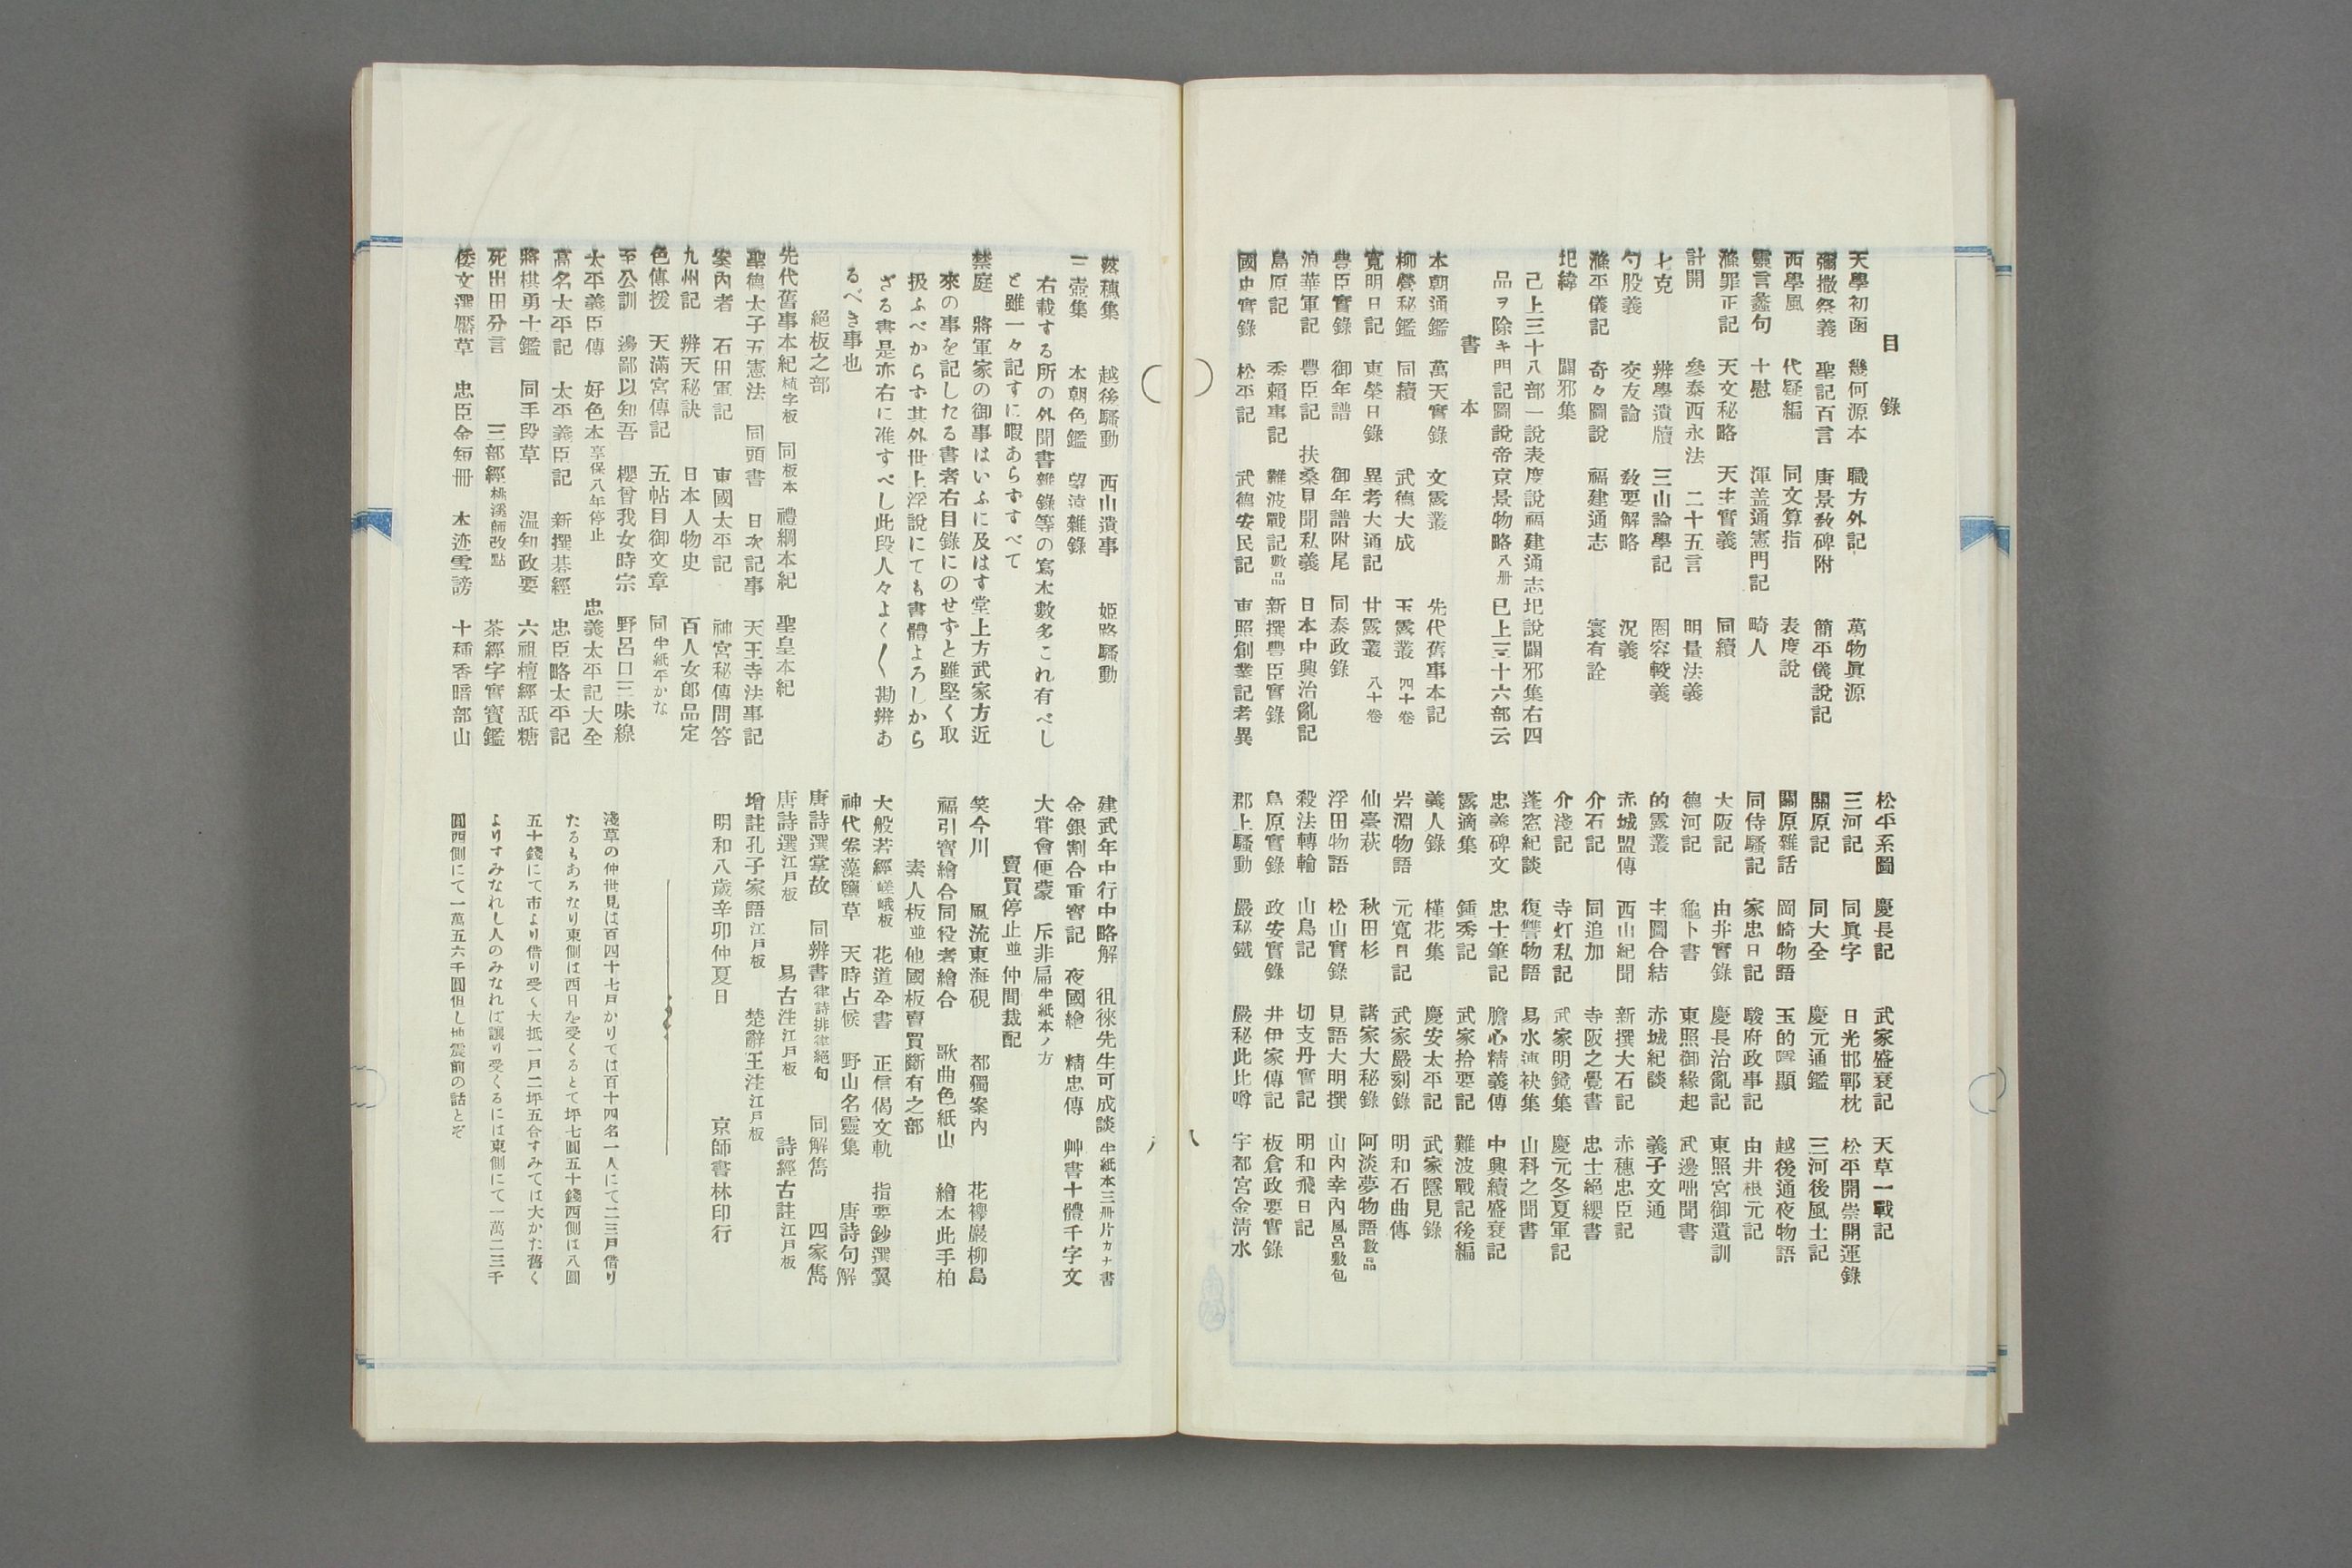 目錄
天學初函　幾何源本　職方外記　萬物眞源
彌撒祭義　聖記百言　唐景敎碑附　簡平儀說記
西學風　代疑編　同文算指　表度說
靈言蠡句　十慰　渾盖通憲門記　畸人
滌罪正記　天文秘略　天主實義　同續
計開　參泰西永法　二十五言　明量法義
七克　辨學遺牘　三山論學記　圏容較義
勾股義　交友論　敎要解略　況義
滌平儀記　奇々圖說　福建通志　寰有詮
圯緯　闢邪集
已上三十八部一說表度說福建通志圯說闢邪集右四
品ヲ除キ門記圖說帝京景物略八册　已上三十六部云
書本
本朝通鑑　萬天實錄　文露叢　先代舊事本記
柳營秘鑑　同續　武德大成　玉露叢　四十卷
寬明日記　東榮日錄　異考大通記　廿露叢　八十卷
豊臣實錄　御年譜　御年譜附尾　同泰政錄
浪華軍記　豐臣記　扶桑見聞私義　日本中興治亂記
島原記　秀賴事記　難波戰記數品　新撰豊臣實錄
國史實錄　松平記　武德安民記　東照創業記考異
松平系圖　慶長記　武家盛衰記　天草一戰記
三河記　同眞字　日光邯鄲枕　松平開崇開運錄
關原記　同大全　慶元通鑑　三河後風土記
關原雜話　岡崎物語　玉的隱顯　越後通夜物語
同侍騷記　家忠日記　駿府政事記　由井根元記
大阪記　由井實錄　慶長治亂記　東照宮御遺訓
德河記　龜卜書　東照御緣起　武邊咄聞書
的露叢　主圖合結　赤城紀談　義子文通
赤城盟傳　西山紀聞　新撰大石記　赤穗忠臣記
介石記　同追加　寺阪之覺書　忠士絕纓書
介淺記　寺灯私記　武家明鏡集　慶元冬夏軍記
蓬窓紀談　復讐物語　易水連袂集　山科之聞書
忠義碑文　忠士筆記　膽心精義傳　中興續盛衰記
露滴集　鍾秀記　武家拾要記　難波戰記後編
義人錄　槿花集　慶安太平記　武家隱見錄
岩淵物語　元寬日記　武家嚴刻錄　明和石曲傳
仙臺萩　秋田杉　諸家大秘錄　阿淡夢物語數品
浮田物語　松山實錄　見語大明撰　山內幸內風呂敷包
殺法轉輪　山鳥記　切支丹實記　明和飛日記
島原實錄　政安實錄　井伊家傳記　板倉政要實錄
郡上騷動　嚴秘鐵　嚴秘此比噂　宇都宮金淸水
八
蓺穗集　越後騷動　西山潰事　姬路騷動
三壺集　本朝色鑑　望遠雜錄
右載する所の外聞書雜錄等の寫本數多これ有べし
と雖一々記すに暇あらずすべて
禁庭　將軍家の御事はいふに及はす堂上方武家方近
來の事を記したる書者右目錄にのせずと雖堅く取
扱ふべからず其外世上浮說にても書體よろしから
ざる書是亦右に准すべし此段人々よく〱勘辨あ
るべき事也
絕板之部
先代舊事本紀植字板　同板本　禮綱本紀　聖皇本紀
聖德太子五憲法　同頭書　日次記事　天王寺法事記
案內者　石田軍記　東國太平記　神宮秘傳問答
九州記　辨天秘訣　日本人物史　百人女郞品定
色傳授　天滿宮傳記　五帖目御文章　同半紙平かな
至公訓　邊鄙以知吾　櫻曾我女時宗　野呂口三味線
太平義臣傳　好色本享保八年停止　忠義太平記大全
高名太平記　太平義臣記　新撰碁經　忠臣略太平記
將棋勇士鑑　同手段草　溫知政要　六祖檀經舐糖
死出田分言　三部經桃溪師改點　茶經字實寶鑑
倭文選鴈草　忠臣金短冊　本迹雪謗　十種香暗部山
建武年中行中略解　徂徠先生可成談半紙本三册片カナ書
金銀割合重寶記　夜國繪　精忠傳　艸書十體千字文
大甞會便蒙　斥非扁半紙本ノ方
賣買停止並仲間裁配
笑今川　風流東海硯　都獨案內　花襷嚴柳島
福引寳繪合同役者繪合　歌曲色紙山　繪本此手柏
素人板並他國板賣買斷有之部
大般若經嵯峨板　花道全書　正信偈文軌　指要鈔選翼
神代卷藻鹽草　天時占候　野山名靈集　唐詩句解
唐詩選掌故　同辨書律詩排律絕句　同解雋　四家雋
唐詩選江戶板　易古注江戶板　詩經古註江戶板
增註孔子家語江戶板　楚辭王注江戶板
明和八歲辛卯仲夏日　京師書林印行
淺草の仲世見は百四十七戶かりては百十四名一人にて二三戶借り
たるもあるなり東側は西日を受くるとて坪七圓五十錢西側は八圓
五十錢にて市より借り受く大抵一戶二坪五合すみては大かた舊く
よりすみなれし人のみなれば讓り受くるには東側にて一萬二三千
圓西側にて一萬五六千圓但し地震前の話とぞ